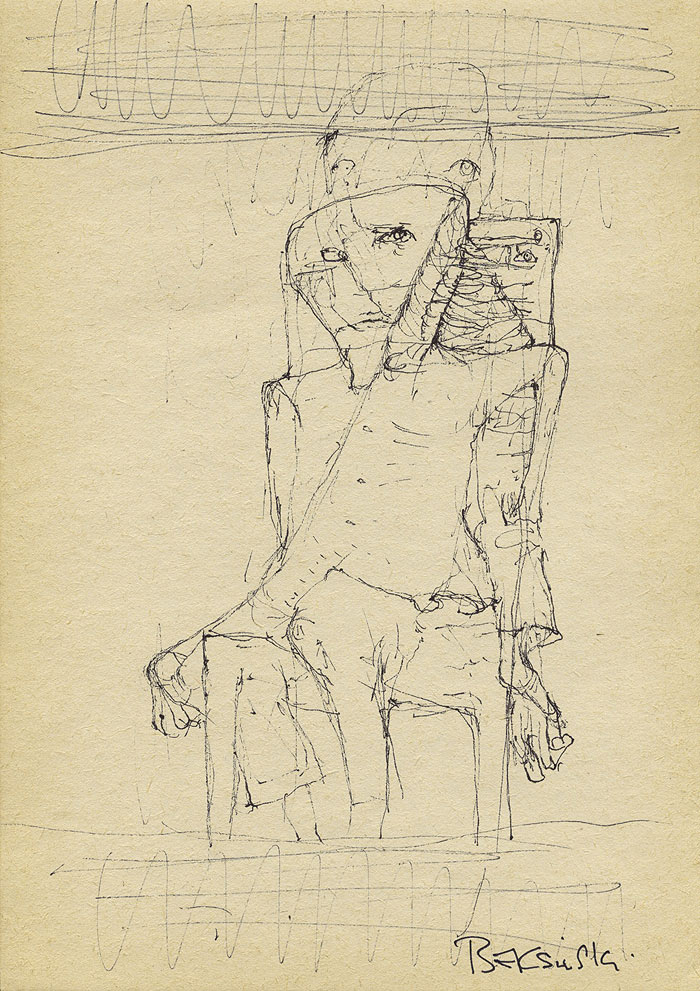 BEKSIŃSKI.